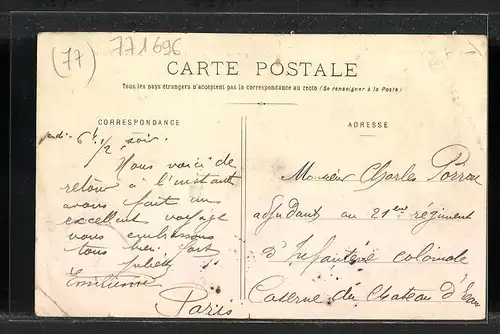 (77)
771696
CARTE POSTALE
Tous les pays étrangers n'acceptent pas la correspondance au recto (Se renseigner à la Poste)
CORRESPONDANCE
6h 1/2 soir.
Nous voici de
retour à l'instant
avons fait un
excellent voyage
vous embrassons
tous bien fort
Juliette
Emilienne
Paris
ADRESSE
Monsieur Charles
adjudant au 21eme régiment
d'Infanterie coloniale
Caserne du Chateau d'Eau